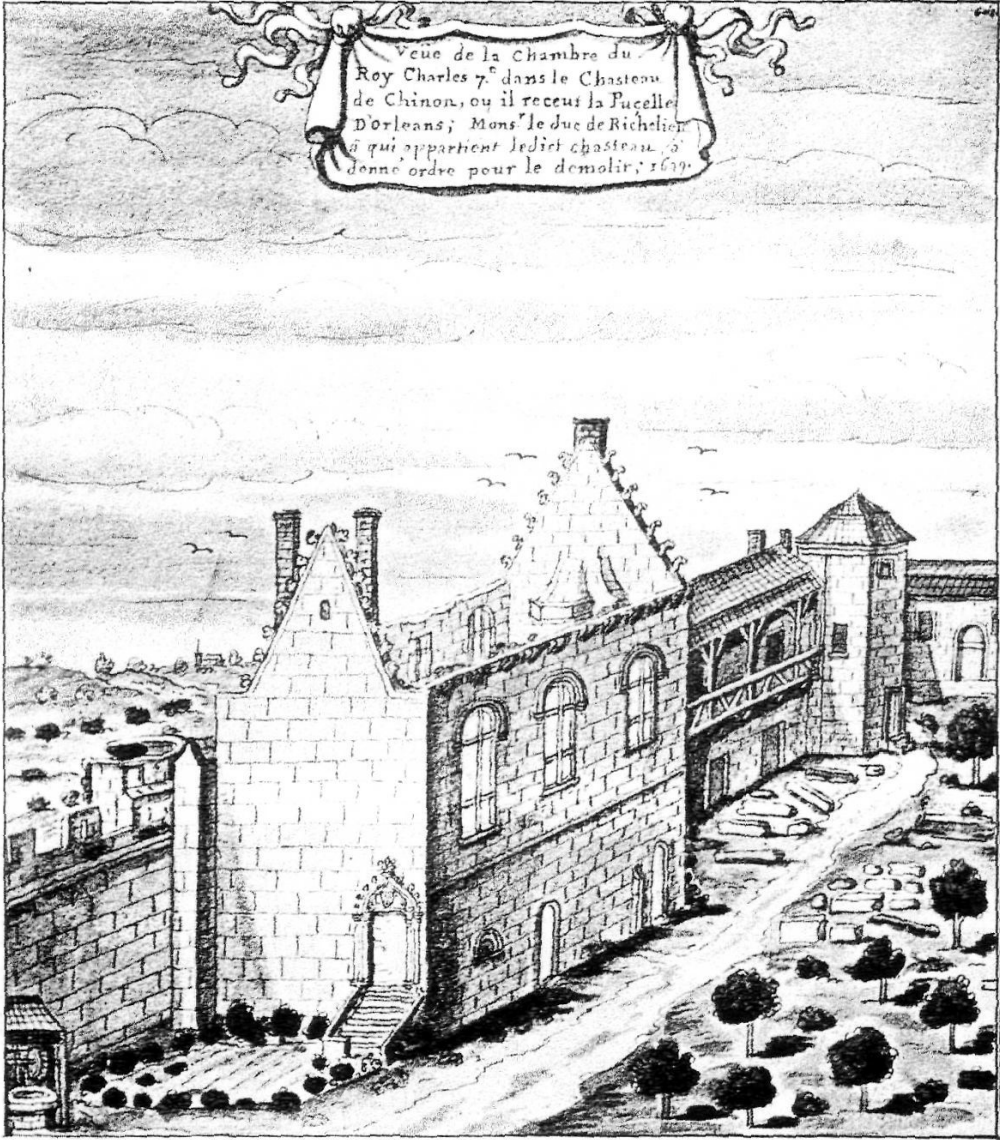 Veüe de la Chambre du
Roy Charles 7.e dans le Chasteau
de Chinon, ou il receut la Pucelle
D'Orleans; Mons.r le duc de Richelieu
a qui appartient ledict chasteau, a
donné ordre pour le demolir;